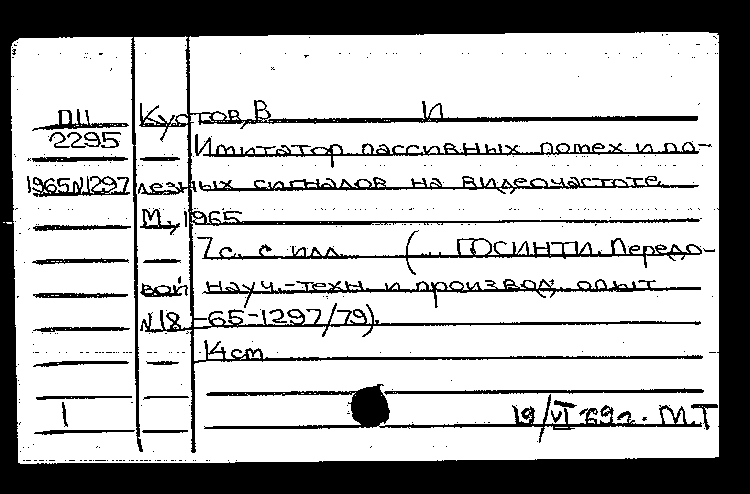 ПII Кустов, В И
2295 Имитатор пассивных помех и по-
1965 N1297 лезных сигналов на видеочастоте
М., 1965
7 с. с илл. (... ГОСИНТИ. Передо-
вой науч.-техн. и производ. опыт
N18-65-1297/79).
14 cm
1 19/VI 69г. М.Т